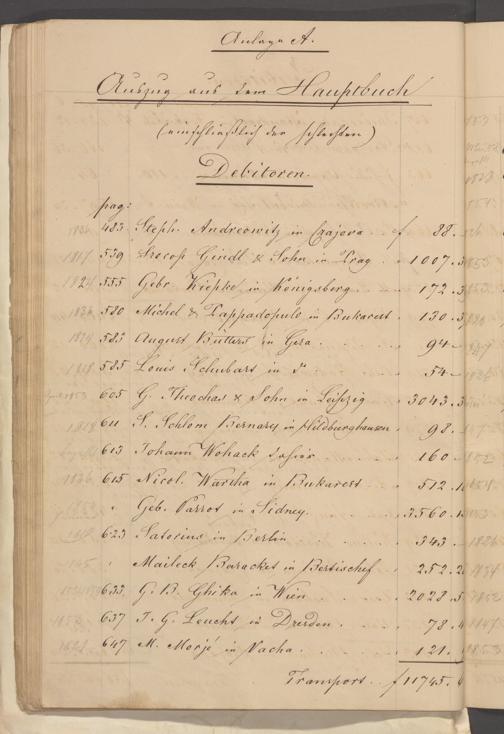 Anlage A.
Auszug aus dem Hauptbuch
(einschließlich der schlechten)
Debitoren.
pag:
483 Steph. Andreowitz in Crajova . f 88.
539 Procop Gindl & Sohn in Prag . . 1007.3
555 Gebr. Kiepke in Königsberg . . 172.3
580 Michel & Pappadopulo in Bukarest . 130.3
583 August Büttert in Gera . . . 94 –
585 Louis Schubart in do . . . 54 –
605 G. Theochar & Sohn in Leipzig . 3043.3
611 S. Schlom Bernary in Hildburghausen . 98.
613 Johann Wohack . . . 160 –
615 Nicol. Warcha in Bukarest . . 512.1
" Geb. Parrot in Sidney . . . 3560.1
623 Satorius in Berlin . . . 343 –
" Maileck Baracket in Bertischef . . 252.2
633 G. B. Ghika in Wien . . . 2028.5
637 F. G. Leucht in Dresden . . . 78.4
647 M. Morjé in Vacha . . . 121.
Transport . . f 11745.